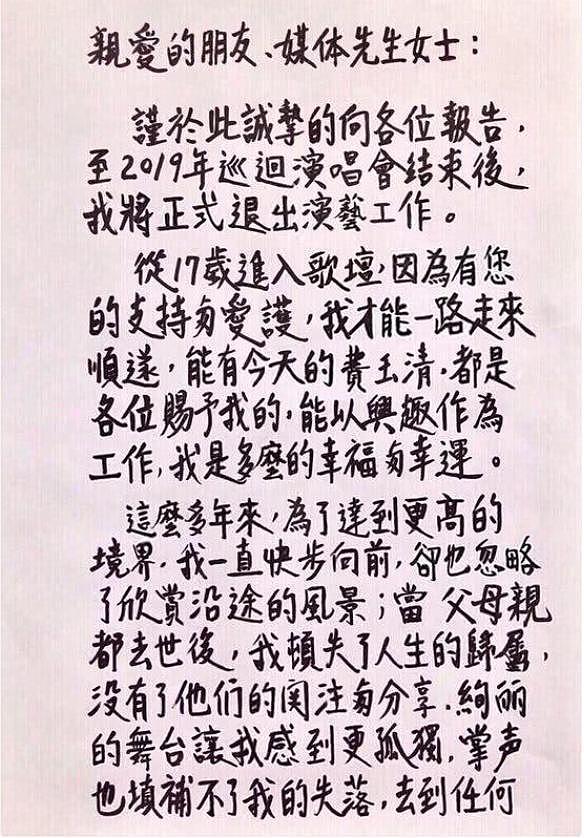 親愛的朋友、媒体先生女士：
謹於此誠摯的向各位報告，
至2019年巡迴演唱會结束後，
我將正式退出演藝工作。
從17歲進入歌壇，因為有您
的支持匄愛護，我才能一路走來
順遂，能有今天的費玉清，都是
各位賜予我的，能以興趣作為
工作，我是多麼的幸福匄幸運。
這麼多年來，為了達到更高的
境界，我一直快步向前，卻也忽略
了欣賞沿途的風景；當父母親
都去世後，我頓失了人生的歸屬，
没有了他们的関注匄分享，絢丽
的舞台讓我感到更孤獨，掌声
也填補不了我的失落，去到任何